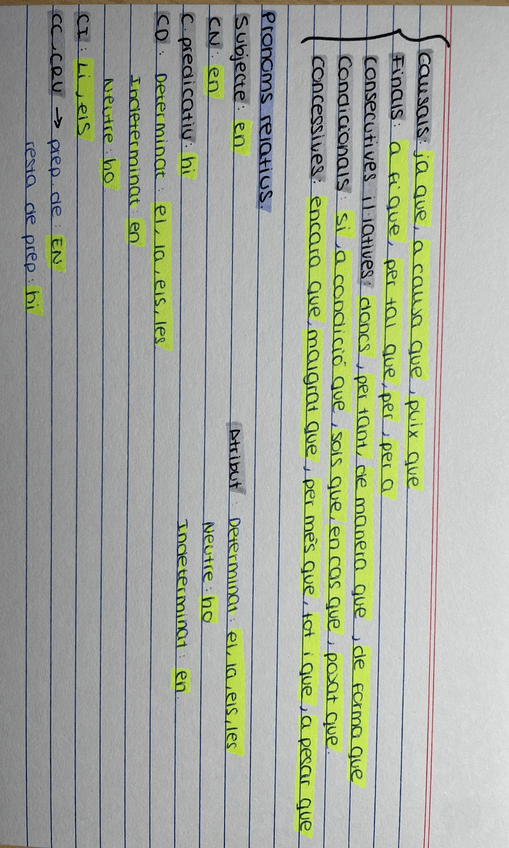 Causals: ja que, a causa que, puix que
Finals: a fi que, per tal que, per, per a
Consecutives il·latives: doncs, per tant, de manera que, de forma que
Condicionals: si, a condició que, sols que, en cas que, posat que.
Concessives: encara que, malgrat que, per més que, tot i que, a pesar que
Pronoms relatius.
Subjecte: en
CN: en
C. predicatiu: hi
CD: Determinat: el, la, els, les
Indeterminat: en
Neutre: ho
CI: Li, els
CC, CRV → prep. de: EN
resta de prep: hi
Atribut: Determinat: el, la, els, les
Neutre: ho
Indeterminat: en.